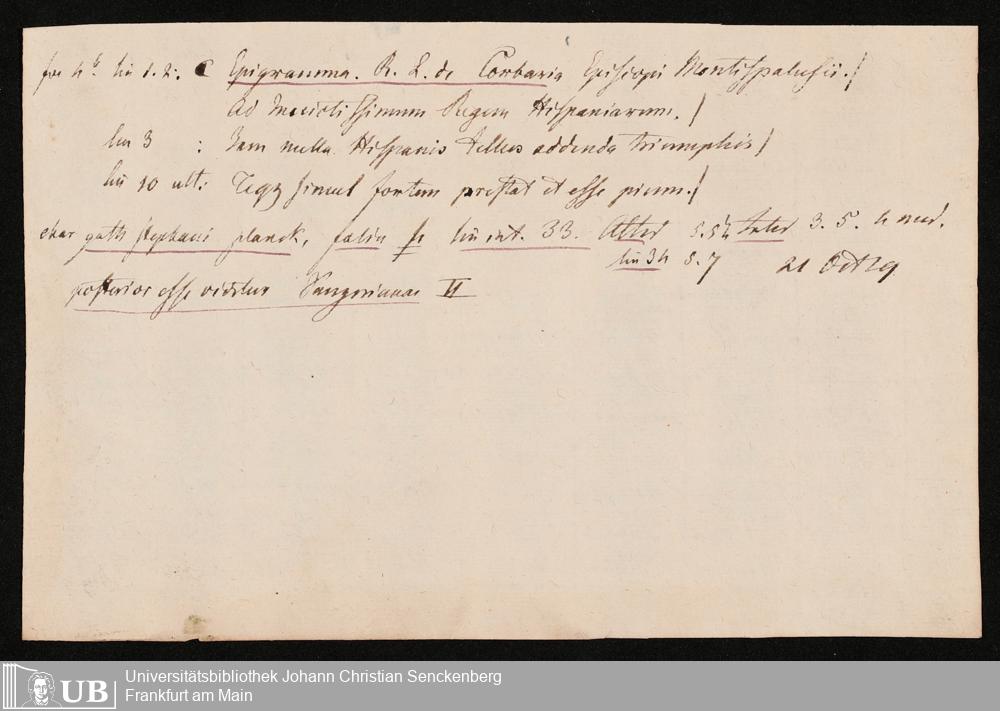 fol 4b. lin 1. 2: C Epigramma. R. L. de Corbaria Episcopi Montispalusii. /
Ad Invictissimum Regem Hispaniarum. /
lin 3 : Iam nulla Hispanis tellus addenda triumphis /
lin 10 ult: Teqz simul fortem prestat et esse pium. /
char goth Stephani planck, lin int. 33. Alter 3. 5. 4 med.
lin 34 8. 7 21 Oct 29
posterior esse videtur VI
Universitätsbibliothek Johann Christian Senckenberg
Frankfurt am Main
UB